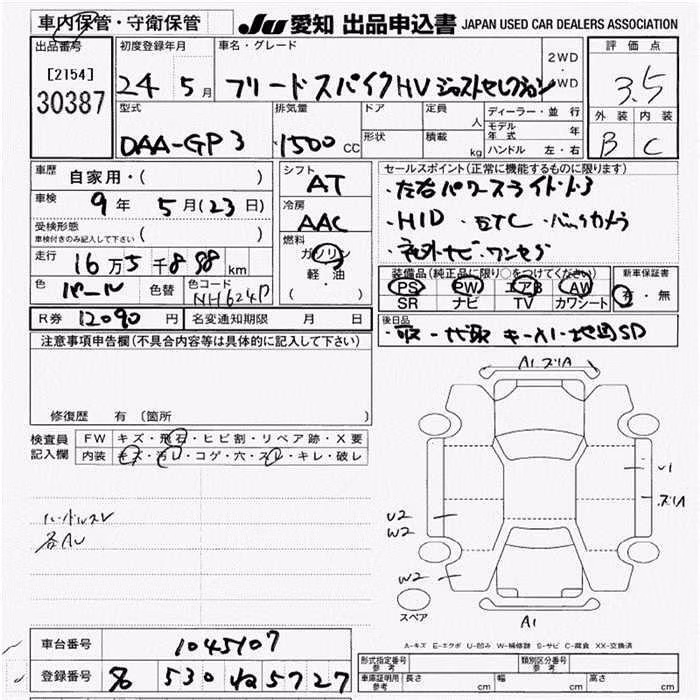 車内保管・守衛保管 JU 愛知 出品申込書 JAPAN USED CAR DEALERS ASSOCIATION
出品番号 初度登録年月 車名・グレード 2WD・4WD 評価点
[2154] 30387 24 5月 フリードスパイクHV ジャストセレクション 3.5
型式 排気量 ドア 定員 人 ディーラー・並行 外装 内装
DAA-GP3 1500 CC 形状 積載 kg モデル年式 年 B C
ハンドル 左・右
車歴 自家用・( ) シフト AT セールスポイント(正常に機能するものに限ります)
車検 9年 5月(23日) 冷房 AAC ・左右パワースライドドア
受検形態 ( ) ・HID ・ETC ・バックカメラ
車検付きのみ記入して下さい 燃料 ガソリン 軽・油 ( ) ・社外ナビ・ワンセグ
走行 16万5千898km 装備品(純正品に限り○をつけてください) 新車保証書
色 パール 色替 色コード NH624P PS PW エアB AW 有・無
SR ナビ TV カワシート
R券 12090円 名変通知期限 月 日 後日品
・取・ キー 地図SD
注意事項申告欄(不具合内容等は具体的に記入して下さい)
修復歴 有 (箇所
検査員記入欄 FW キズ・飛石・ヒビ割・リペア跡・X要
内装 キズ・汚し・コゲ・穴・スレ・キレ・破レ
A1ズリA
U1
ズリA
U2
W2
W2
ハンドルスレ
各AU
スペア
A1
A-キズ E-エクボ U-凹み W-補修跡 S-サビ C-腐食 XX-交換済
車台番号 1045107
登録番号 530 ね 5727
形式指定番号 参考 類別区分番号 参考
車庫証明用 参考 長さ cm 幅 cm 高さ cm